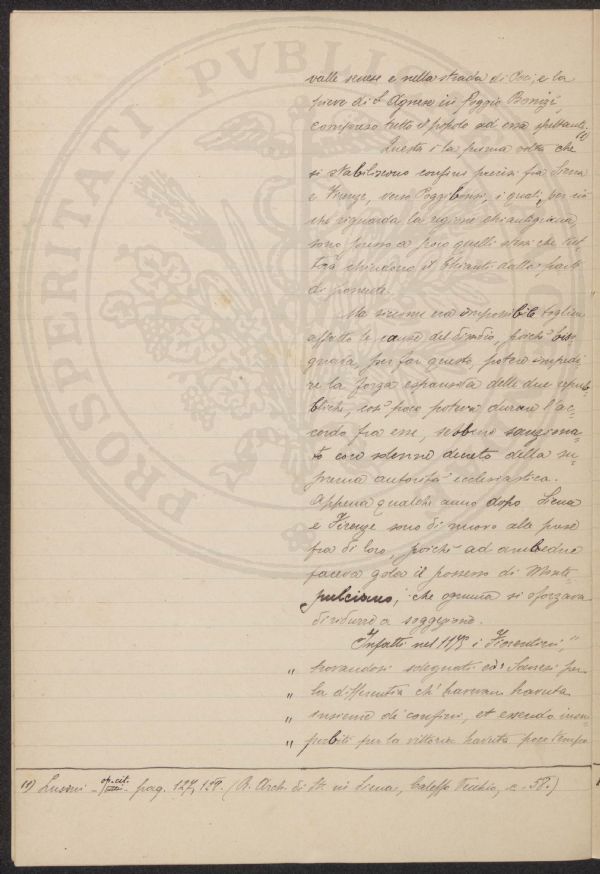 valle senese e nella strada di Coci, e la
pieve di S. Agnese in Poggio Bonizi,
compreso tutto il popolo ad essa spettante. (1)
Questa è la prima volta che
si stabiliscono confini precisi fra Siena
e Firenze, verso Poggibonsi, i quali, per ciò
che riguarda la regione chiantigiana
sono presso a poco quelli stessi che tut-
t'ora chiudono il Chianti dalla parte
di ponente.
Ma siccome era impossibile togliere
affatto le cause del dissidio, poichè biso-
gnava, per far questo, potere impedi-
re la forza espansiva delle due repub-
bliche, così poco poteva durare l'ac-
cordo fra esse, sebbene sanziona-
to con solenne decreto della su-
prema autorità ecclesiastica.
Appena qualche anno dopo Siena
e Firenze sono di nuovo alle prese
fra di loro, poichè ad ambedue
faceva gola il possesso di Monte-
pulciano, che ognuna si sforzava
di ridurre a soggezione.
Infatti nel 1174 i Fiorentini, "
" trovandosi sdegnati co' Sanesi per
" la differentia ch' havevan havuta
" insieme de' confini, et essendo insu-
" perbiti per la vittoria havuta poco tempo
PROSPERITATI PVBLIC
(1) Lusini - op. cit. pag. 127, 129. (R. Arch. di St. in Siena, Caleffo Vecchio, c. 58.)